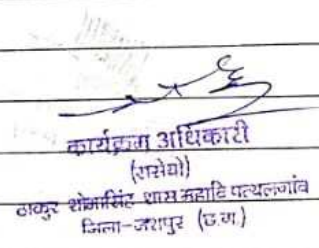 कार्यक्रम अधिकारी
(रासेयो)
ठाकुर शोभासिंह शास महावि पत्थलगांव
जिला-जशपुर (छ.ग.)